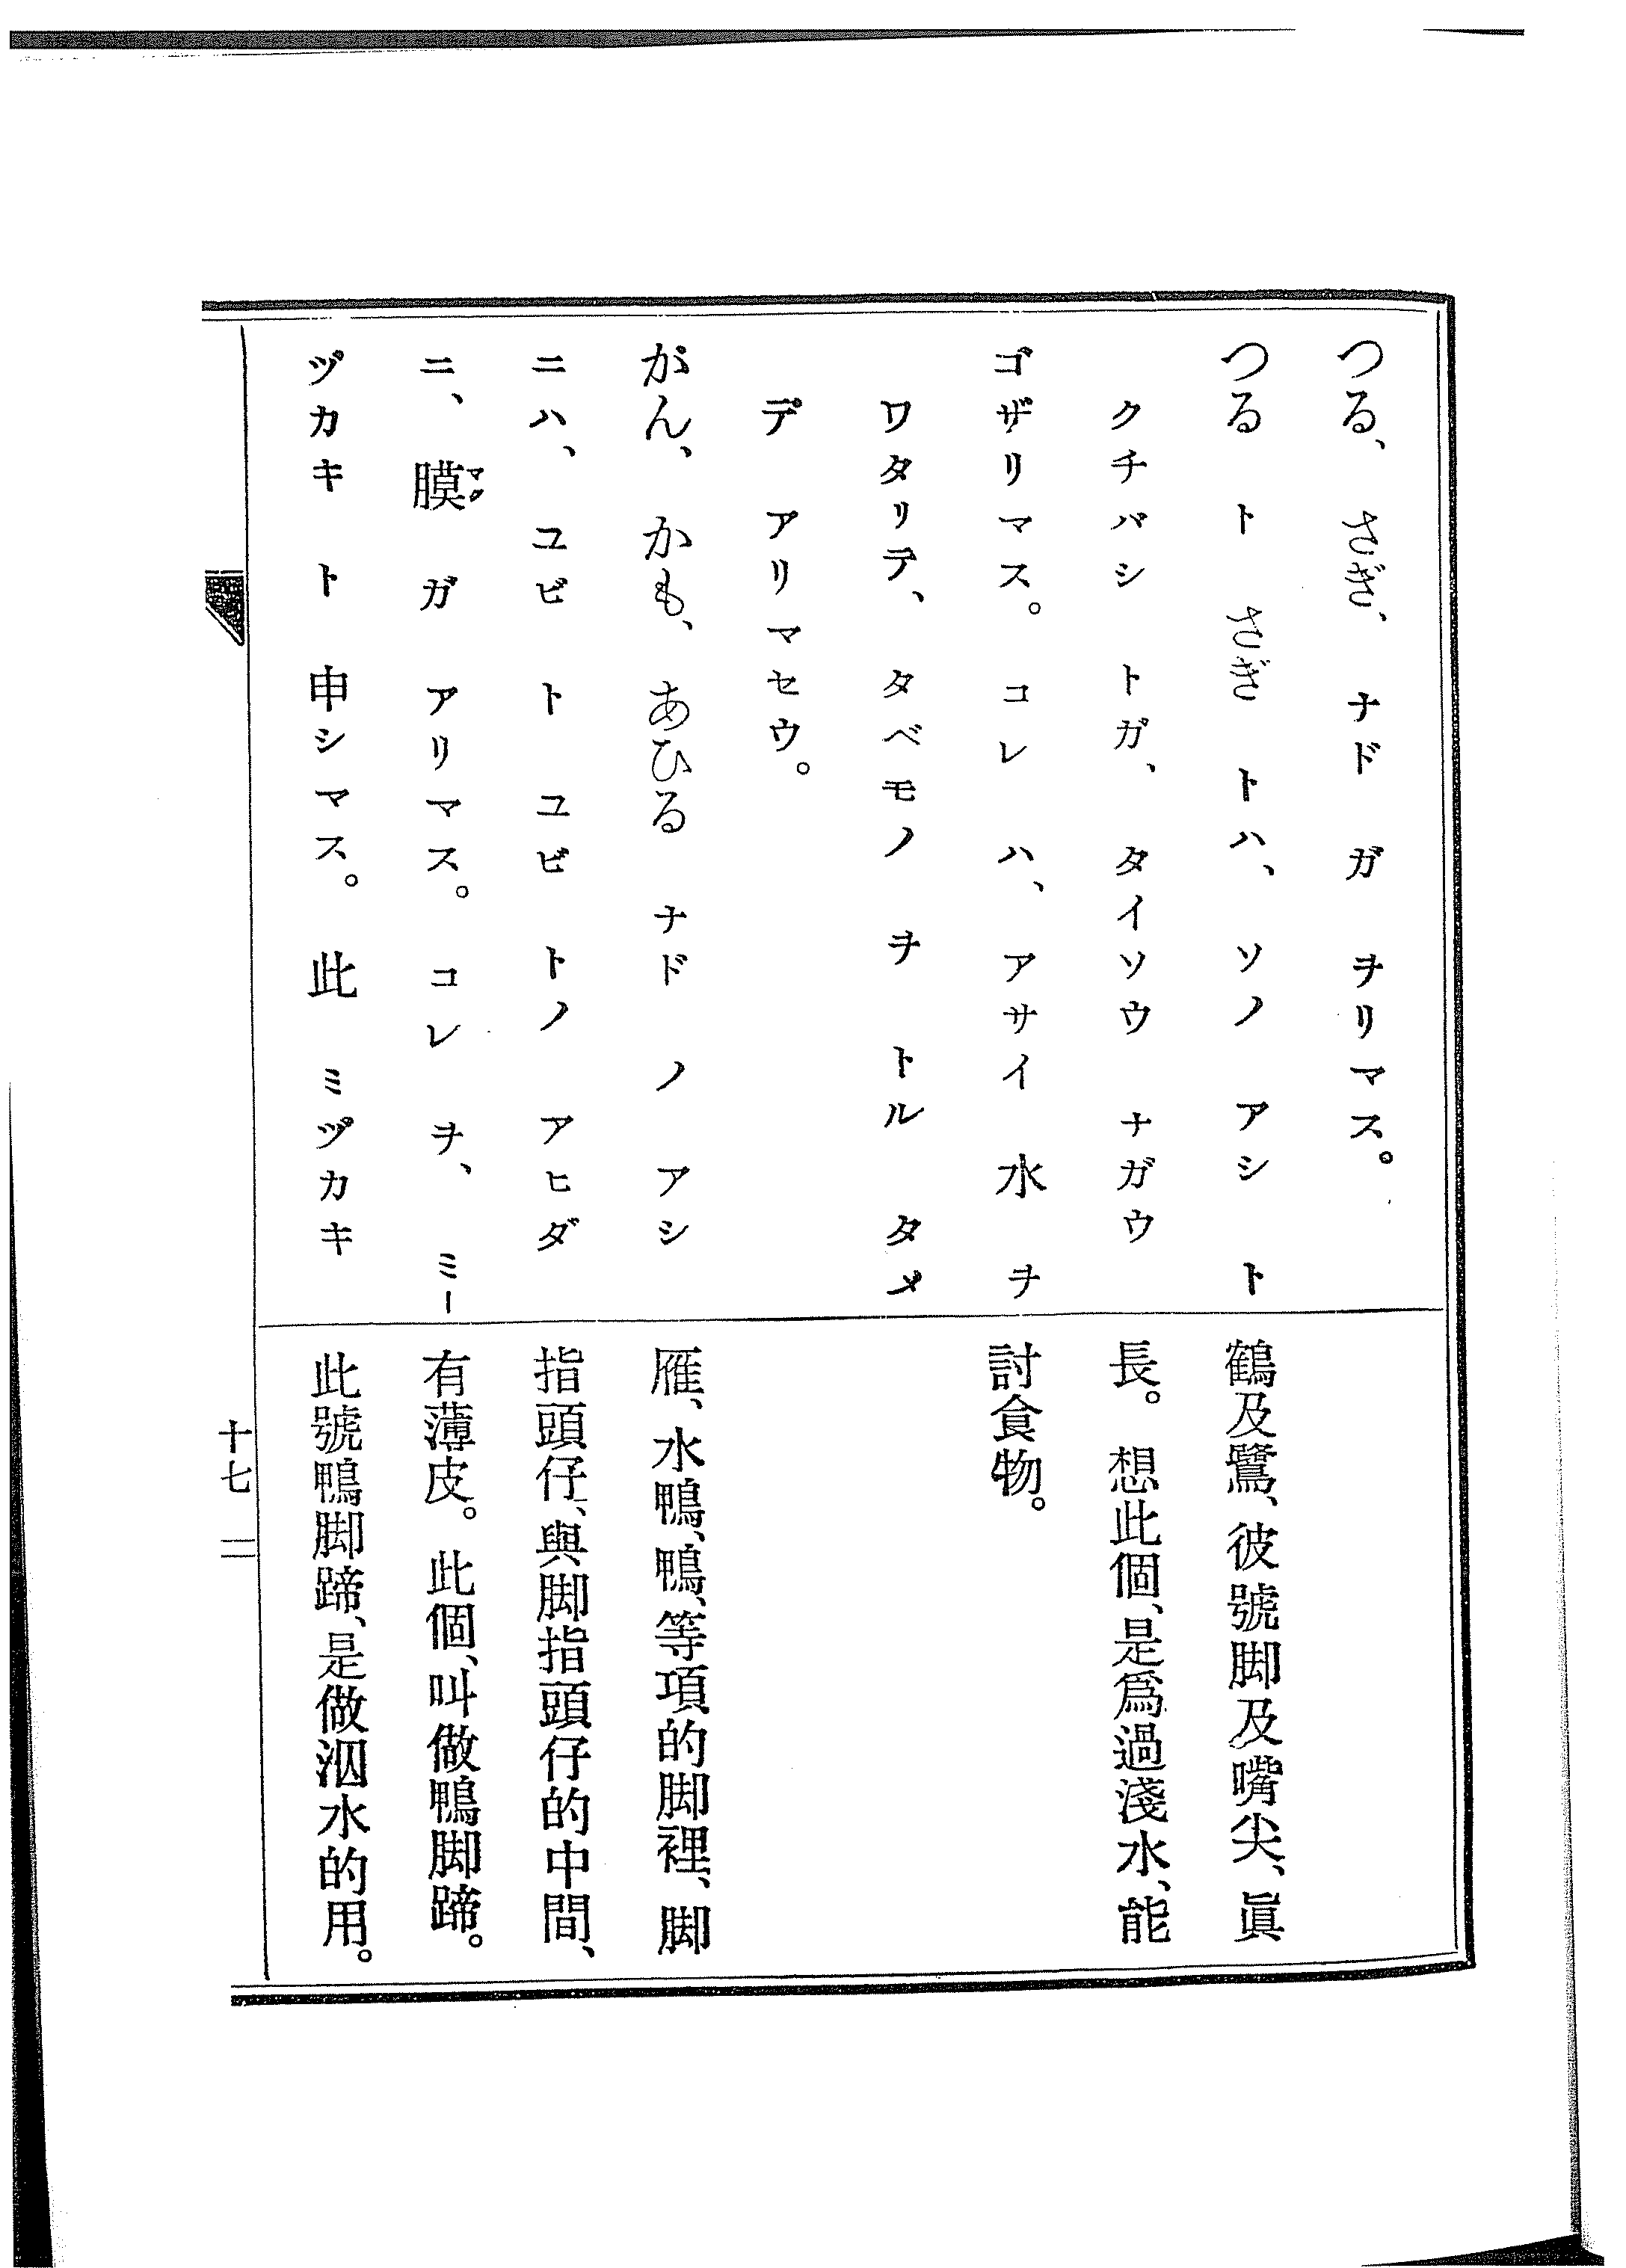 つる、 さぎ、 ナド ガ ヲリマス。
つる ト さぎ トハ、 ソノ アシ ト
クチバシ トガ、 タイソウ ナガウ
ゴザリマス。 コレ ハ、 アサイ 水 ヲ
ワタリテ、 タベモノ ヲ トル タメ
デ アリマセウ。
がん、 かも、 あひる ナド ノ アシ
ニハ、 ユビ ト ユビ トノ アヒダ
ニ、 膜 ガ アリマス。 コレ ヲ、 ミー
マク
ヅカキ ト 申シマス。 此 ミヅカキ
鶴及鷺、彼號脚及嘴尖、眞
長。想此個、是爲過淺水、能
討食物。
雁、水鴨、鴨、等項的脚裡、脚
指頭仔、與脚指頭仔的中間、
有薄皮。此個、叫做鴨脚蹄。
此號鴨脚蹄、是做泅水的用。
十七 二